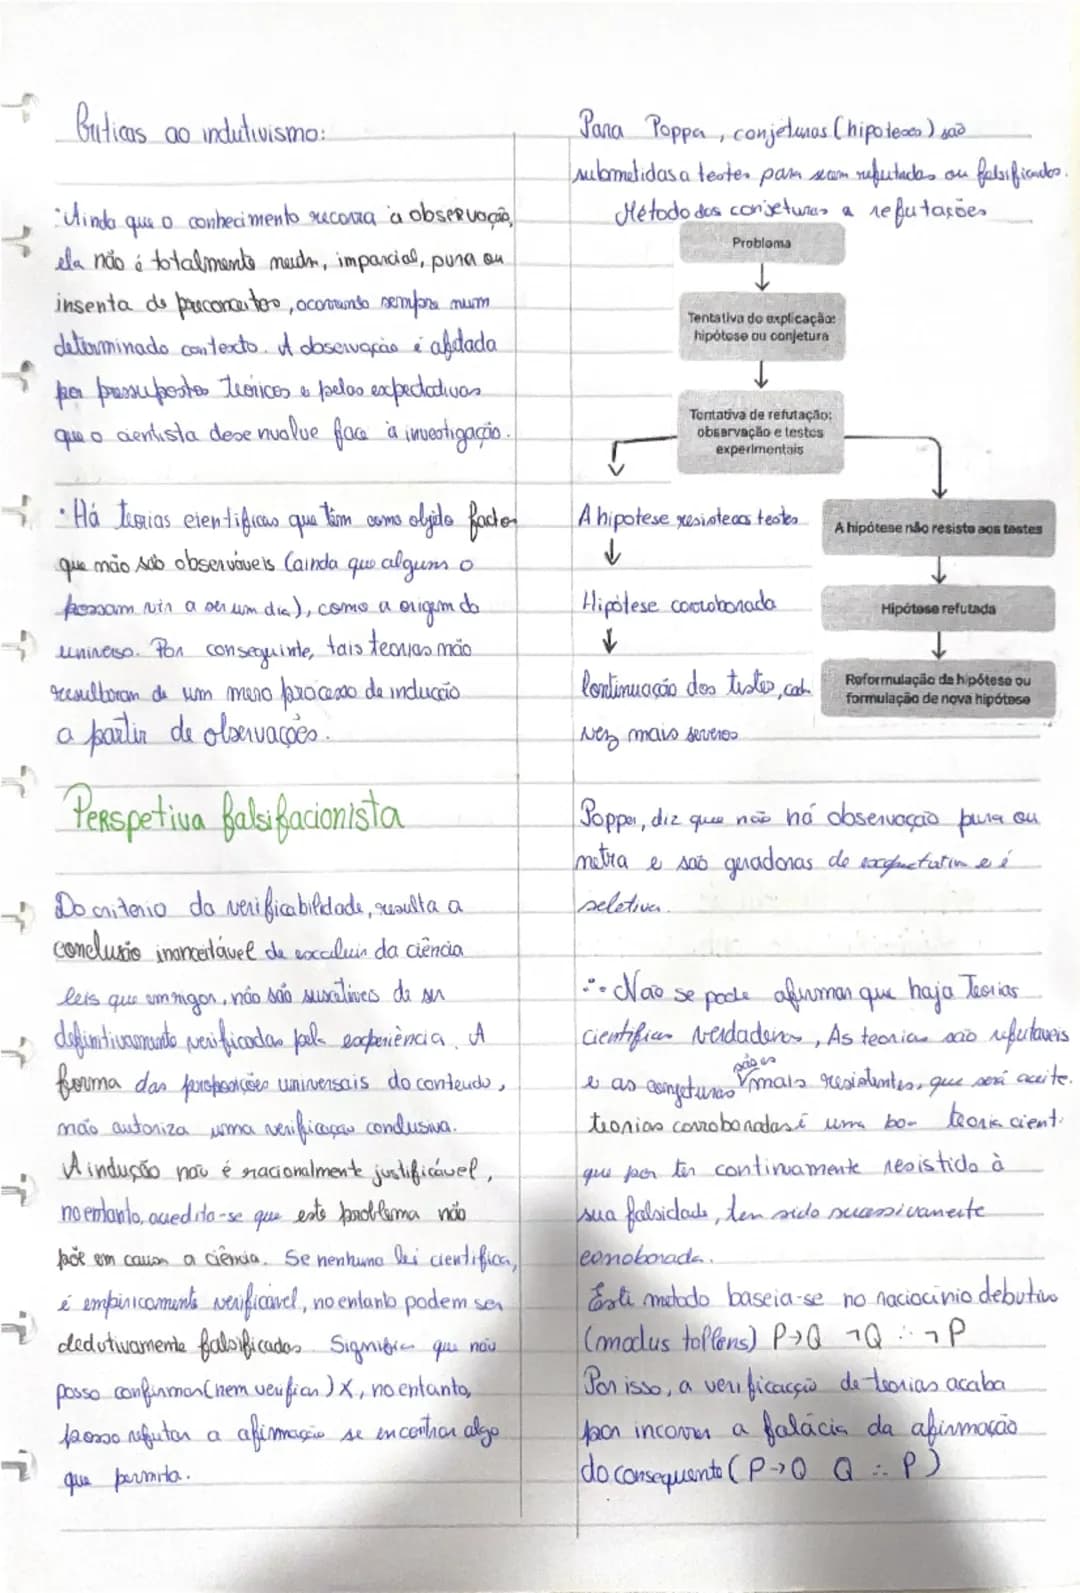 Criticas ao indutivismo:
· Ainda que o conhecimento recorra à observação,
ela não é totalmente neutra, imparcial, pura ou
insenta de preconceitos, ocorrendo sempre num
determinado contexto. A observação é afetada
por pressupostos teóricos e pelas expectativas
que o cientista desenvolve face à investigação.
· Há teorias cientificas que têm como objeto factos
que não são observáveis (ainda que alguns o
possam vir a ser um dia), como a origem do
universo. Por conseguinte, tais teorias não
resultaram de um mero processo de indução
a partir de observações.
Perspetiva falsifacionista
Do criterio da verificabilidade, resulta a
conclusão inaceitável de excluir da ciência
leis que em rigor, não são de ser
definitivamente verificadas pela experiência. A
forma das proposições universais do conteudo,
não autoriza uma verificação conclusiva.
A indução não é racionalmente justificável,
no entanto, acredita-se que este problema não
põe em causa a ciência. Se nenhuma lei cientifica,
é empiricamente verificável, no entanto podem ser
dedutivamente falsificadas. Significa que não
posso confirmar (nem verificar) X, no entanto,
posso refutar a afirmação se encontrar algo
que permita.
Para Popper, conjeturas (hipoteses) são
submetidas a testes para serem refutadas ou falsificadas.
Método das conjeturas e refutações
Problema
Tentativa de explicação:
hipótese ou conjetura
Tentativa de refutação:
observação e testes
experimentais
A hipotese resiste aos testes
Hipótese corroborada
Continuação dos testes, cada
vez mais severos
A hipótese não resiste aos testes
Hipótese refutada
Reformulação da hipótese ou
formulação de nova hipótese
Popper, diz que não há observação pura ou
neutra e são geradoras de e é
seletiva.
∴ Não se pode afirmar que haja Teorias
cientificas verdadeiras, As teorias são refutaveis
e as conjeturas mais resistentes, que será aceite.
teorias corroboradas é uma boa teoria cient.
que por ter continuamente resistido à
sua falsidade, tem sido sucessivamente
corroborada.
Este metodo baseia-se no raciocinio debutivo
(modus tollens) P→Q ¬Q ∴ ¬P
Por isso, a verificação de teorias acaba
por incorrer a falácia da afirmação
do consequente (P→Q Q ∴ P)